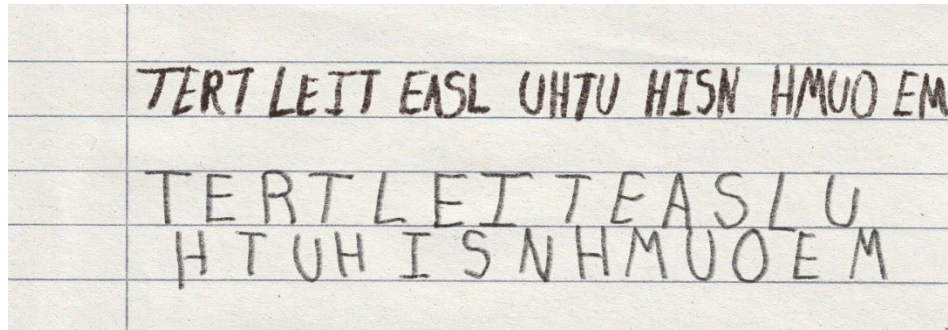 TERT LEIT EASL UHTU HISN HMUO EM
TERTLEITEASLU
HTUHISNHMUOEM